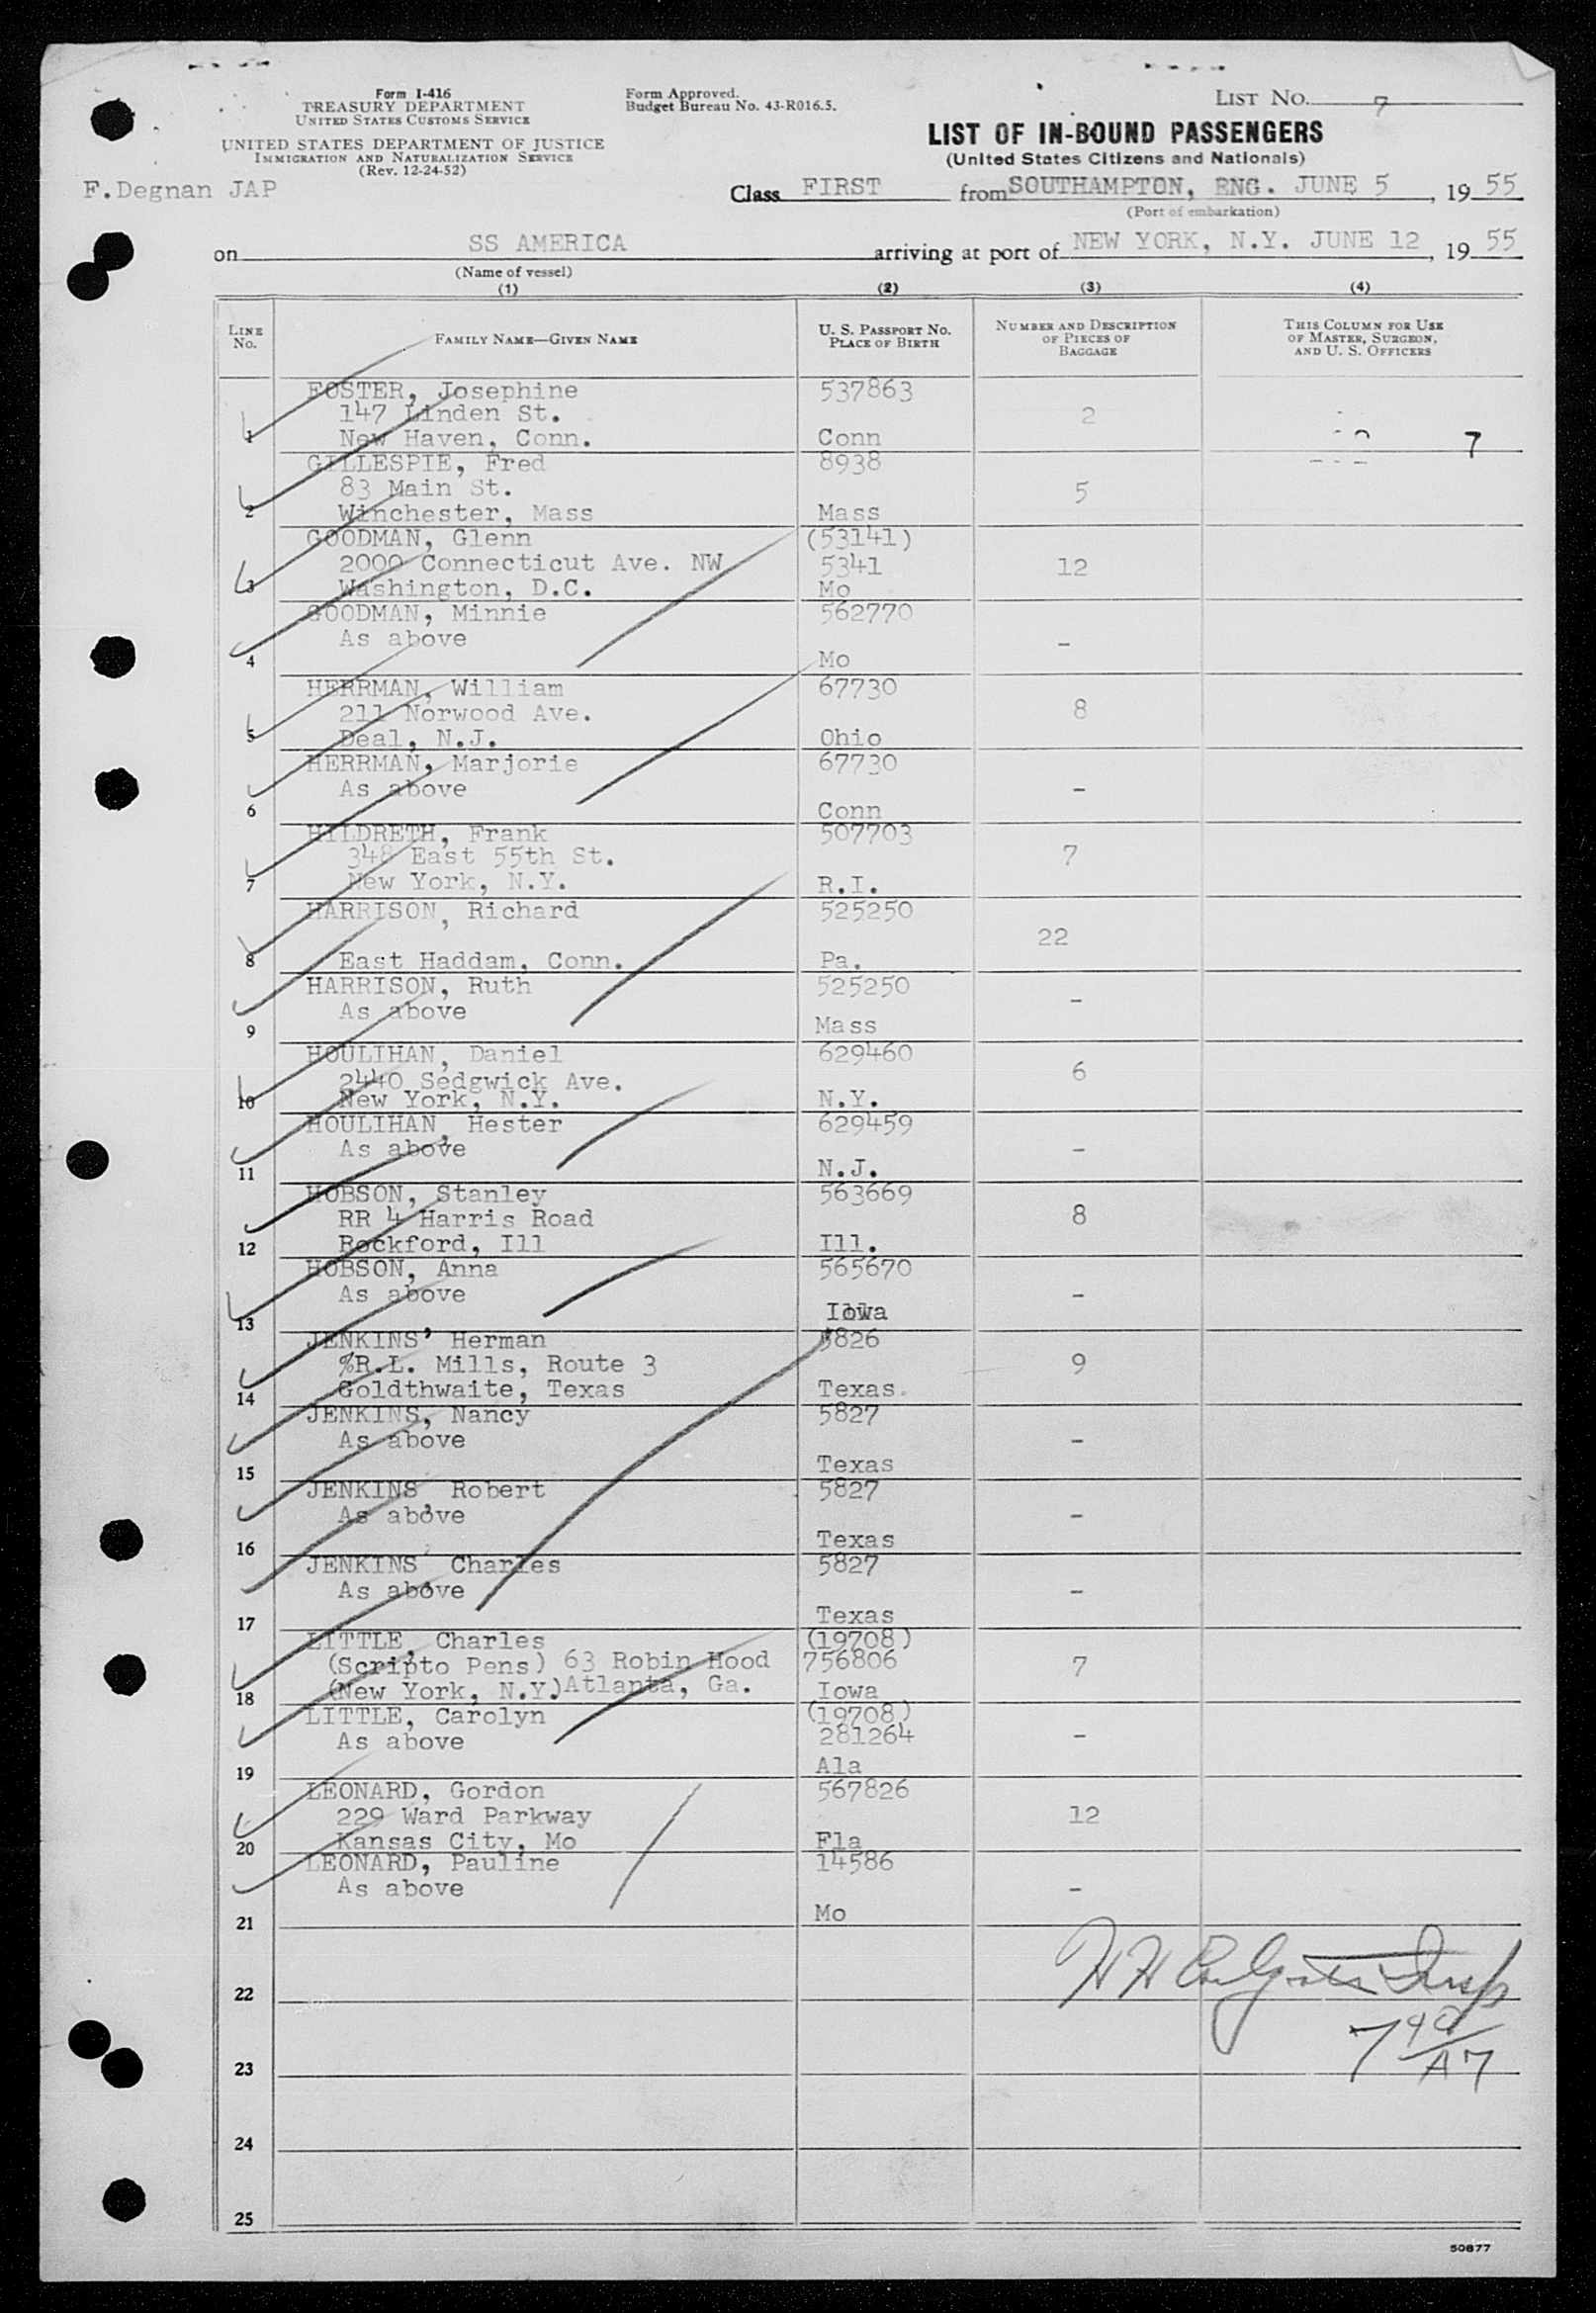 Form I-416
TREASURY DEPARTMENT
UNITED STATES CUSTOMS SERVICE
UNITED STATES DEPARTMENT OF JUSTICE
IMMIGRATION AND NATURALIZATION SERVICE
(Rev. 12-24-52)
Form Approved.
Budget Bureau No. 43-R016.5.
LIST NO. 7
LIST OF IN-BOUND PASSENGERS
(United States Citizens and Nationals)
F.Degnan JAP
Class FIRST from SOUTHAMPTON, ENG. JUNE 5, 19 55
(Port of embarkation)
on SS AMERICA arriving at port of NEW YORK, N.Y. JUNE 12, 19 55
(Name of vessel)
(1) (2) (3) (4)
LINE No.
FAMILY NAME—GIVEN NAME
U. S. PASSPORT NO.
PLACE OF BIRTH
NUMBER AND DESCRIPTION
OF PIECES OF
BAGGAGE
THIS COLUMN FOR USE
OF MASTER, SURGEON,
AND U. S. OFFICERS
FOSTER, Josephine 537863
147 Linden St. 2
1 New Haven, Conn. Conn 7
GILLESPIE, Fred 8938
83 Main St. 5
2 Winchester, Mass Mass
GOODMAN, Glenn (53141)
2000 Connecticut Ave. NW 5341 12
3 Washington, D.C. Mo
GOODMAN, Minnie 562770
As above -
4 Mo
HERRMAN, William 67730
211 Norwood Ave. 8
5 Deal, N.J. Ohio
HERRMAN, Marjorie 67730
As above -
6 Conn
HILDRETH, Frank 507703
348 East 55th St. 7
7 New York, N.Y. R.I.
HARRISON, Richard 525250
22
8 East Haddam, Conn. Pa.
HARRISON, Ruth 525250
As above -
9 Mass
HOULIHAN, Daniel 629460
2440 Sedgwick Ave. 6
10 New York, N.Y. N.Y.
HOULIHAN, Hester 629459
As above -
11 N.J.
HOBSON, Stanley 563669
RR 4 Harris Road 8
12 Rockford, Ill Ill.
HOBSON, Anna 565670
As above -
13 Iowa
JENKINS, Herman 5826
%R.L. Mills, Route 3 9
14 Goldthwaite, Texas Texas.
JENKINS, Nancy 5827
As above -
15 Texas
JENKINS, Robert 5827
As above -
16 Texas
JENKINS, Charles 5827
As above -
17 Texas
LITTLE, Charles (19708)
(Scripto Pens) 63 Robin Hood 756806 7
18 (New York, N.Y.) Atlanta, Ga. Iowa
LITTLE, Carolyn (19708)
As above 281264 -
19 Ala
LEONARD, Gordon 567826
229 Ward Parkway 12
20 Kansas City, Mo Fla
LEONARD, Pauline 14586
As above -
21 Mo
22
23
24
25
50877